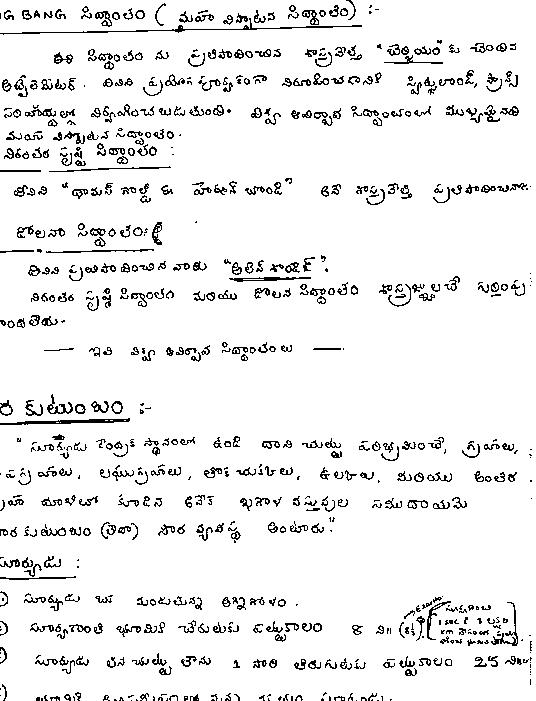 NG BANG సిద్ధాంతం ( మహా విస్ఫోటన సిద్ధాంతం) :-
ఈ సిద్ధాంతం ను ప్రతిపాదించిన శాస్త్రవేత్త "బెల్జియం" కు చెందిన
దీనిని ప్రయోగ పూర్వకంగా నిరూపించడానికి స్విట్జర్లాండ్, ఫ్రాన్స్
సరిహద్దుల్లో నిర్వహించబడుతుంది. విశ్వ ఆవిర్భావ సిద్ధాంతంలలో ముఖ్యమైనది
మహా విస్ఫోటన సిద్ధాంతం.
నిరంతర సృష్టి సిద్ధాంతం :
దీనిని "థామస్ గోల్డ్ ఈ హెర్మన్ బాండి" అనే శాస్త్రవేత్త ప్రతిపాదించినారు
డోలనా సిద్ధాంతం:
దీనిని ప్రతిపాదించిన వారు "అలెన్ శాండేజ్".
నిరంతర సృష్టి సిద్ధాంతం మరియు డోలన సిద్ధాంతం శాస్త్రజ్ఞులచే గుర్తింపు
పొందలేదు.
ఇవి విశ్వ ఆవిర్భావ సిద్ధాంతంలు
ర కుటుంబం :-
"సూర్యుడు కేంద్రక స్థానంలో ఉండి దాని చుట్టూ పరిభ్రమించే, గ్రహాలు,
పగ్రహాలు, లఘుగ్రహాలు, తోక చుక్కలు, ఉల్కలు, మరియు అంతర
గ్రహ ధూళితో కూడిన అనేక ఖగోళ వస్తువుల సముదాయమే
ార కుటుంబం (లేదా) సౌర వ్యవస్థ అంటారు."
సూర్యుడు :
సూర్యుడు ఒక మండుతున్న అగ్నిగోళం.
సూర్యకాంతి భూమికి చేరుటకు పట్టుకాలం 8 ని॥ (8⅓)
సూర్యుడు తన చుట్టూ తాను 1 సారి తిరుగుటకు పట్టుకాలం 25